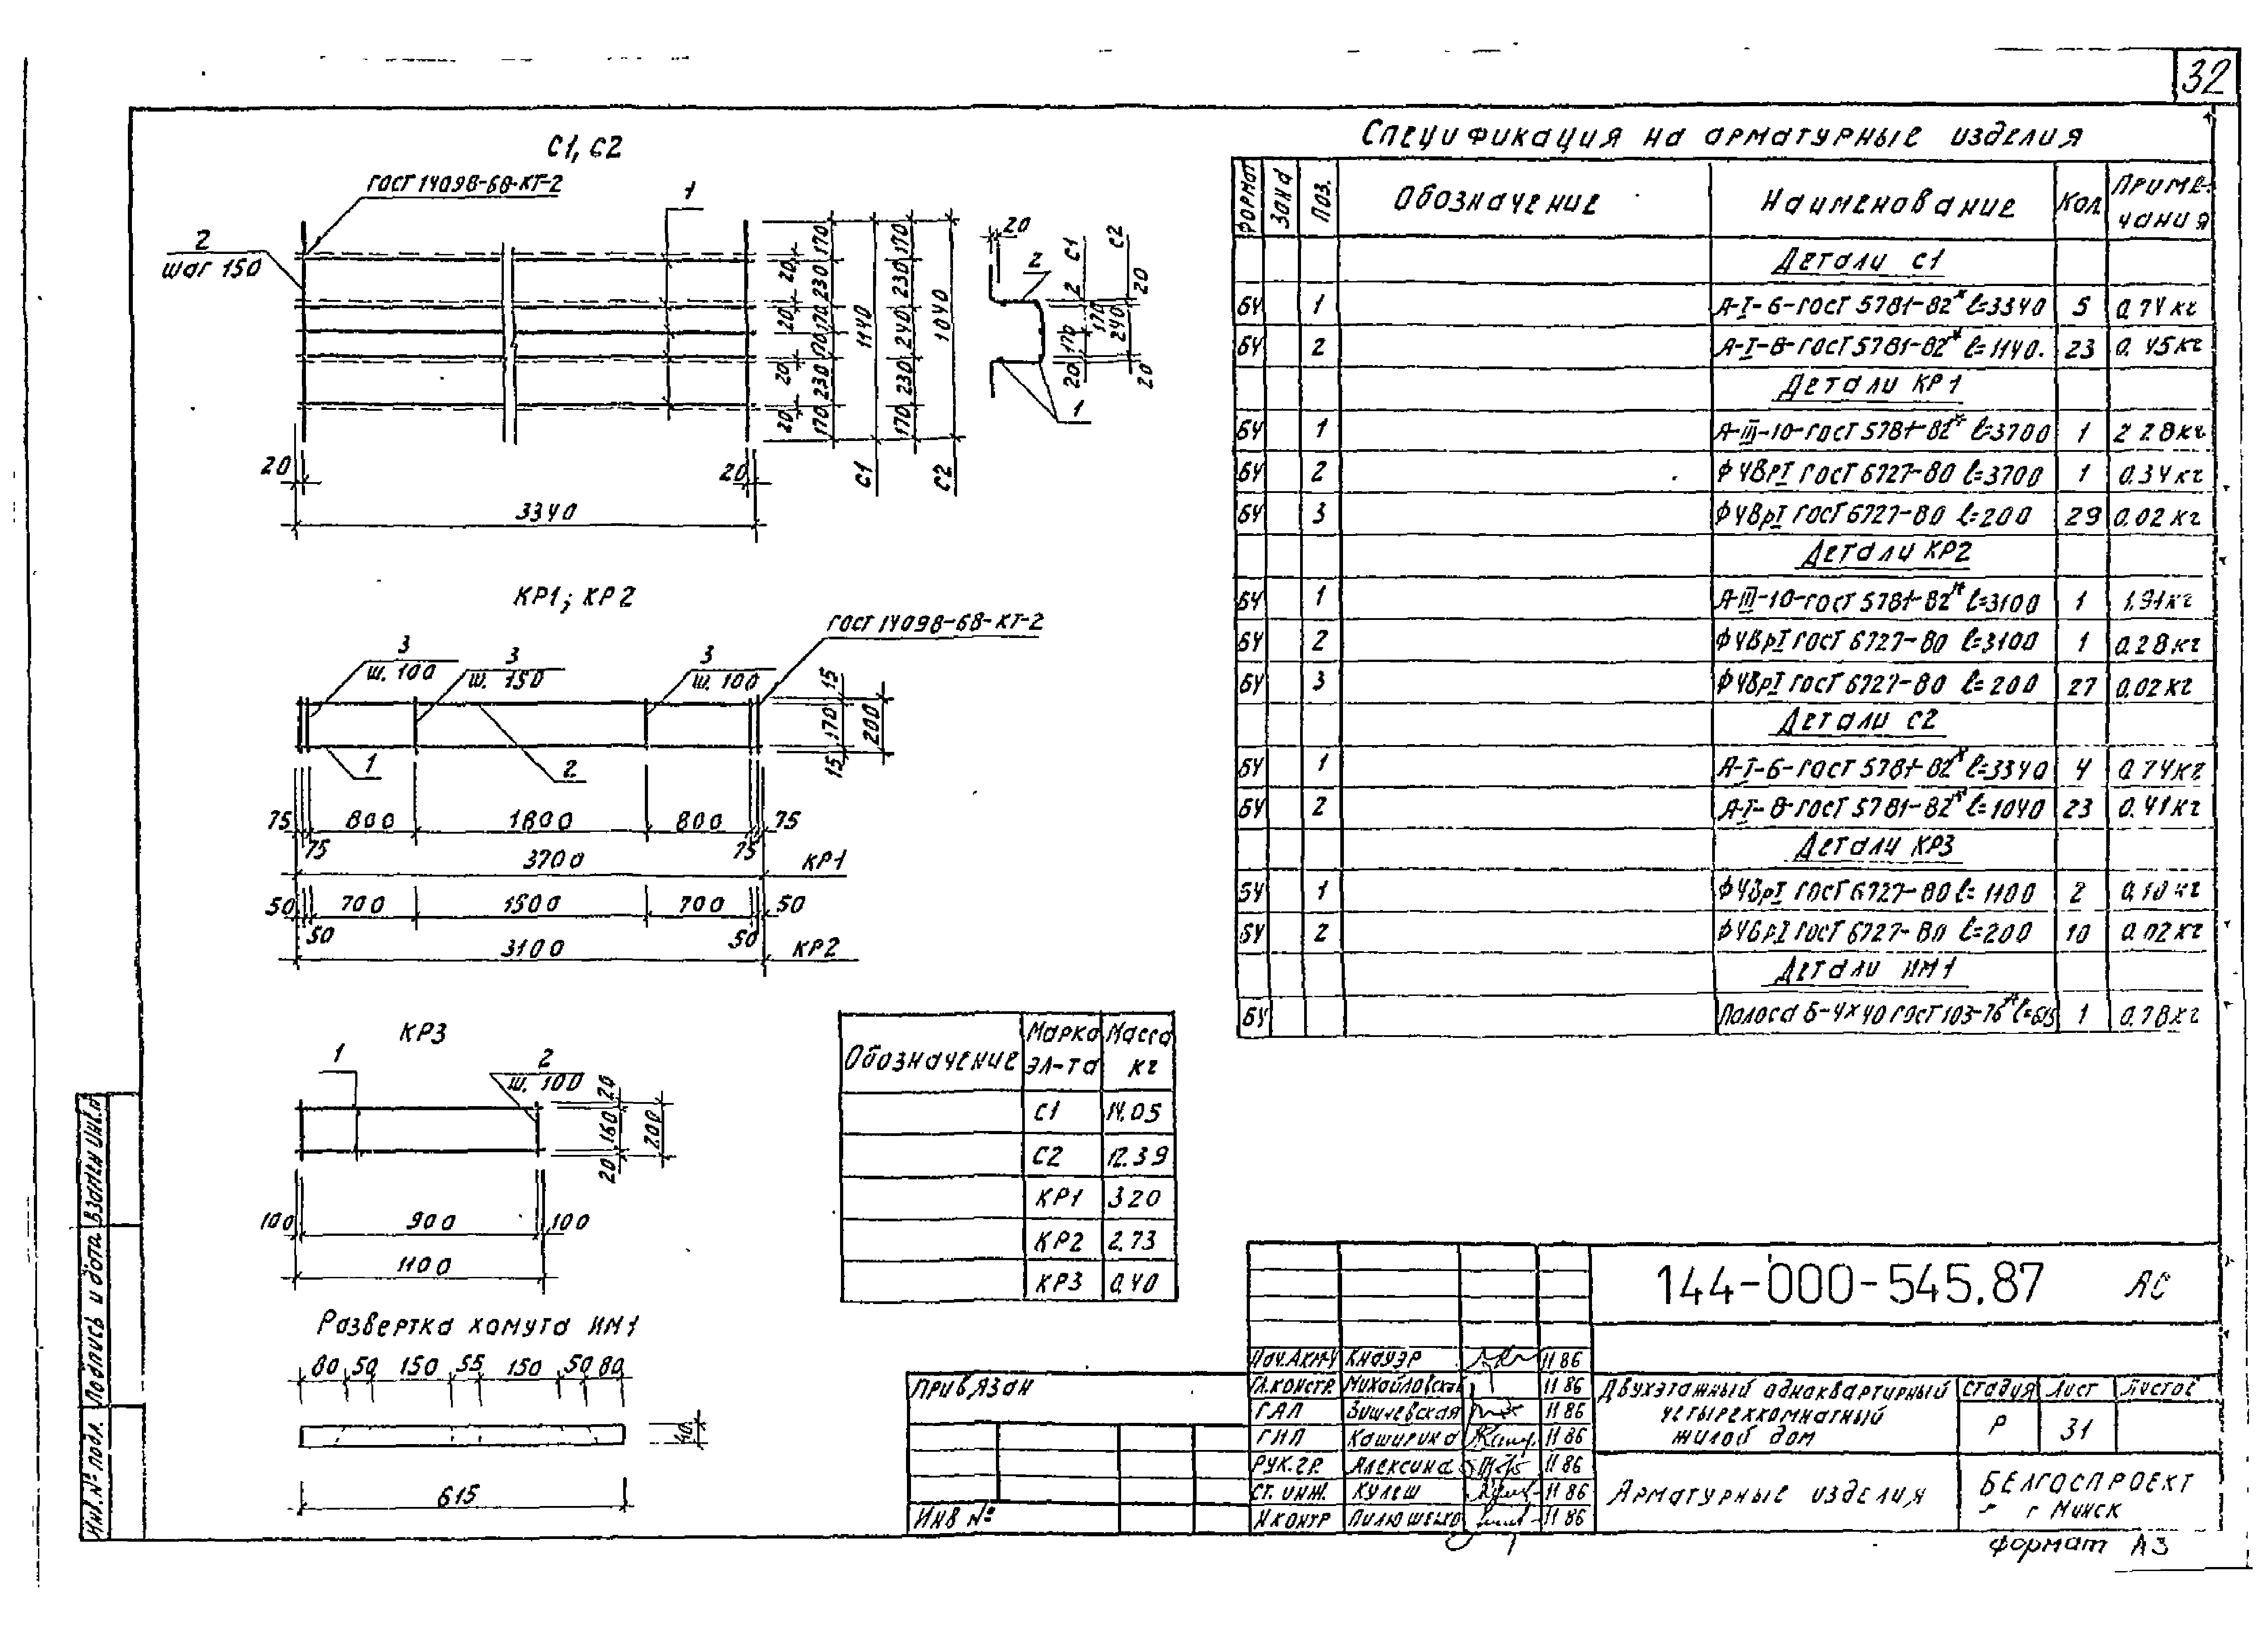 32
С1, С2
ГОСТ 14098-68-КТ-2
1
2
шаг 150
20
20
3340
20 20 20 20
170 230 170 170 230 170
1140
С1
170 230 240 230 170
1040
С2
20
2
С1
С2
2
20
170
170
240
20
20
1
КР1; КР2
ГОСТ 14098-68-КТ-2
3
ш. 100
3
ш. 150
3
ш. 100
15
170
15
200
1
2
75 800 1800 800 75
75 75
3700 КР1
50 700 1500 700 50
50 50
3100 КР2
КР3
1
2
ш. 100
20
160
20
200
100 900 100
1100
Развертка хомута НМ1
80 50 150 55 150 50 80
40
615
Обозначение Марка эл-та Масса кг
С1 14.05
С2 12.39
КР1 3 20
КР2 2.73
КР3 0.40
Спецификация на арматурные изделия
Формат Зона Поз. Обозначение Наименование Кол. Приме-чания
Детали С1
БЧ 1 А-I-6-ГОСТ 5781-82* ℓ=3340 5 0.74 кг
БЧ 2 А-I-8-ГОСТ 5781-82* ℓ=1140. 23 0.45 кг
Детали КР1
БЧ 1 А-III-10-ГОСТ 5781-82* ℓ=3700 1 2 28 кг
БЧ 2 Ф4ВрI ГОСТ 6727-80 ℓ=3700 1 0.34 кг
БЧ 3 Ф4ВрI ГОСТ 6727-80 ℓ=200 29 0.02 кг
Детали КР2
БЧ 1 А-III-10-ГОСТ 5781-82* ℓ=3100 1 1.91 кг
БЧ 2 Ф4ВрI ГОСТ 6727-80 ℓ=3100 1 0.28 кг
БЧ 3 Ф4ВрI ГОСТ 6727-80 ℓ=200 27 0.02 кг
Детали С2
БЧ 1 А-I-6-ГОСТ 5781-82* ℓ=3340 4 0.74 кг
БЧ 2 А-I-8-ГОСТ 5781-82* ℓ=1040 23 0.41 кг
Детали КР3
БЧ 1 Ф4ВрI ГОСТ 6727-80 ℓ=1100 2 0.10 кг
БЧ 2 Ф4ВрI ГОСТ 6727-80 ℓ=200 10 0.02 кг
Детали НМ1
БЧ Полоса Б-4х40 ГОСТ 103-76* ℓ=615 1 0.78 кг
144-000-545.87 АС
Нач.АКМ-4 Кнауэр 11 86
Гл.констр. Михайловский 11 86
ГАП 11 86
ГИП Каширина 11 86
Рук.гр. Алексина 11 86
Ст. инж. Кулеш 11 86
Н контр 11 86
Двухэтажный одноквартирный
четырехкомнатный
жилой дом
Стадия Лист Листов
Р 31
Арматурные изделия
БЕЛГОСПРОЕКТ
г Минск
Формат А3
Привязан
Инв №
Инв.№ подл. Подпись и дата Взамен инв.№